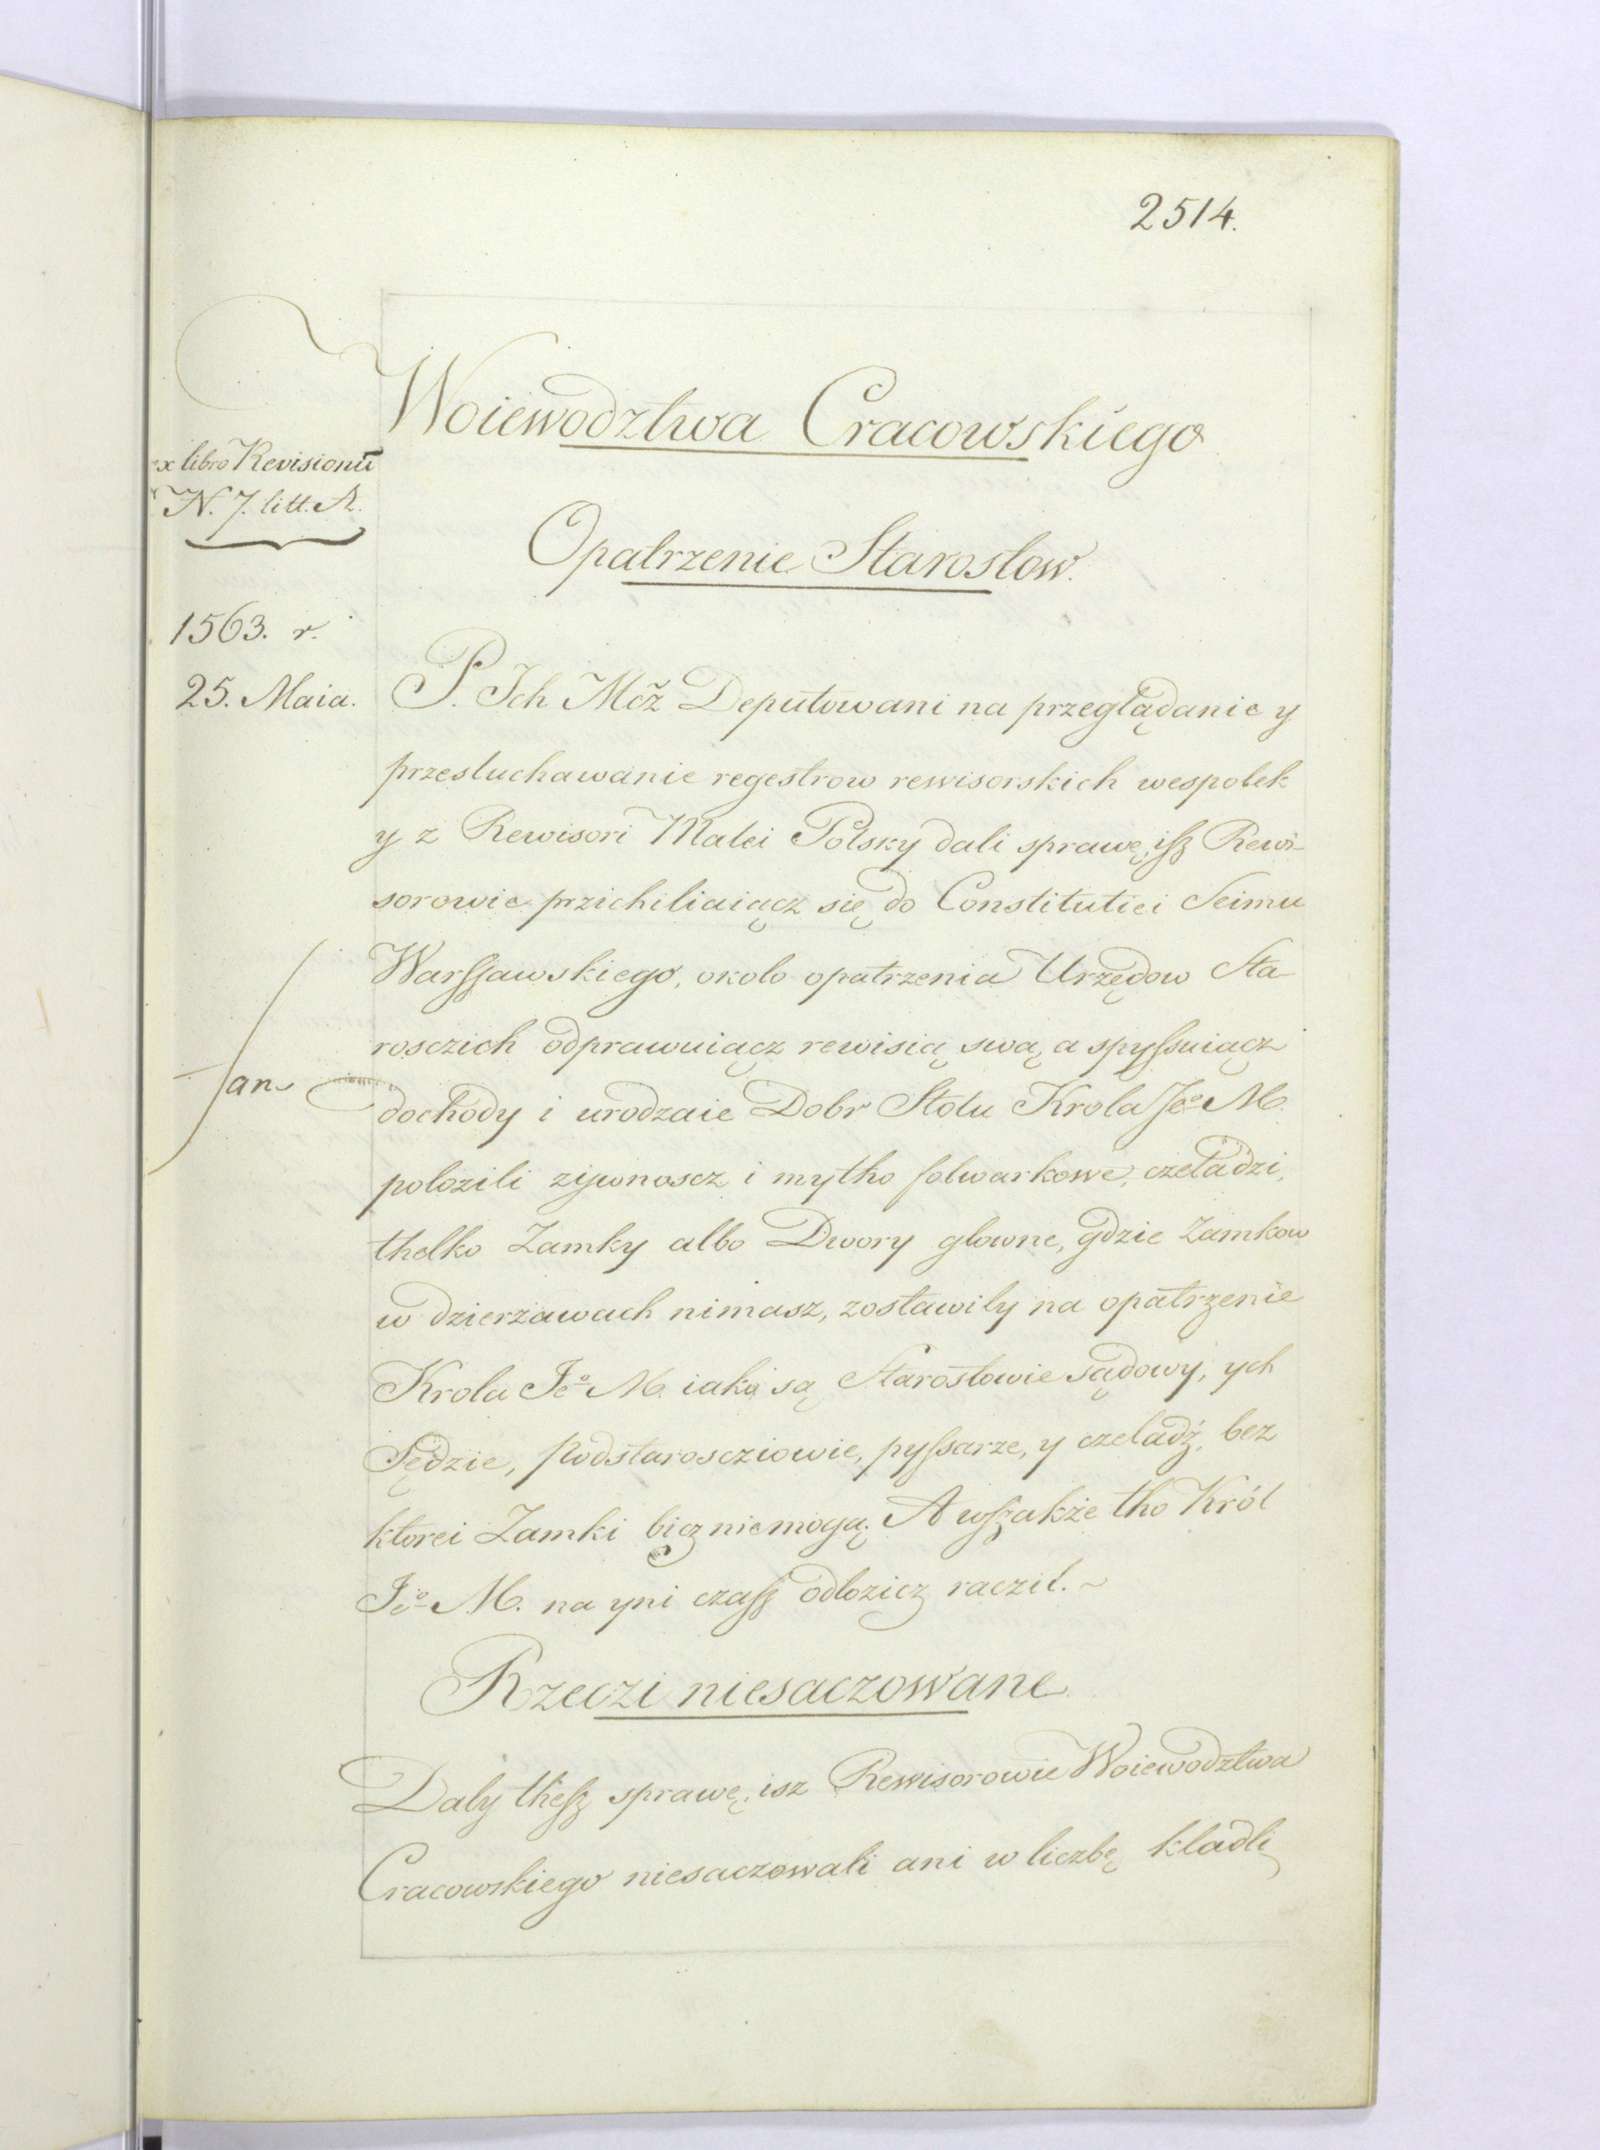 2514.
Woiewodztwa Cracowskiego
ex libro Revisionū
N. 7. litt. A.
Opatrzenie Starostow.
1563. r.
25. Maia.
P. Ich Mcż Deputowani na przeglądanie y
przesluchawanie regestrow rewisorskich wespolek
y z Rewisori Malei Polsky dali sprawę, isz Rewi-
sorowie przichiliaiącz się do Constitutiei Seimu
Warssawskiego, okolo opatrzenia Urzędow Sta-
rosczich odprawuiącz rewisią swą a spyssuiącz
dochody i urodzaie Dobr Stolu Krola Jeo M.
polozili zywnoscz i mytho folwarkowe, czeladzi,
thelko Zamky albo Dwory glowne, gdzie Zamkow
w dzierzawach nimasz, zostawily na opatrzenie
Krola Jeo M. iako są Starostowie sądowy, ych
Sędzie, Podstaroscziowie, pyssarze, y czeladź, bez
ktorei Zamki bicz niemogą. A wszakże tho Król
Jeo M. na yni czass odlozicz raczil. ~
Rzeczi niesaczowane
Daly thesz sprawę, isz Rewisorowie Woiewodztwa
Cracowskiego niesaczowali ani w liczbę kladli